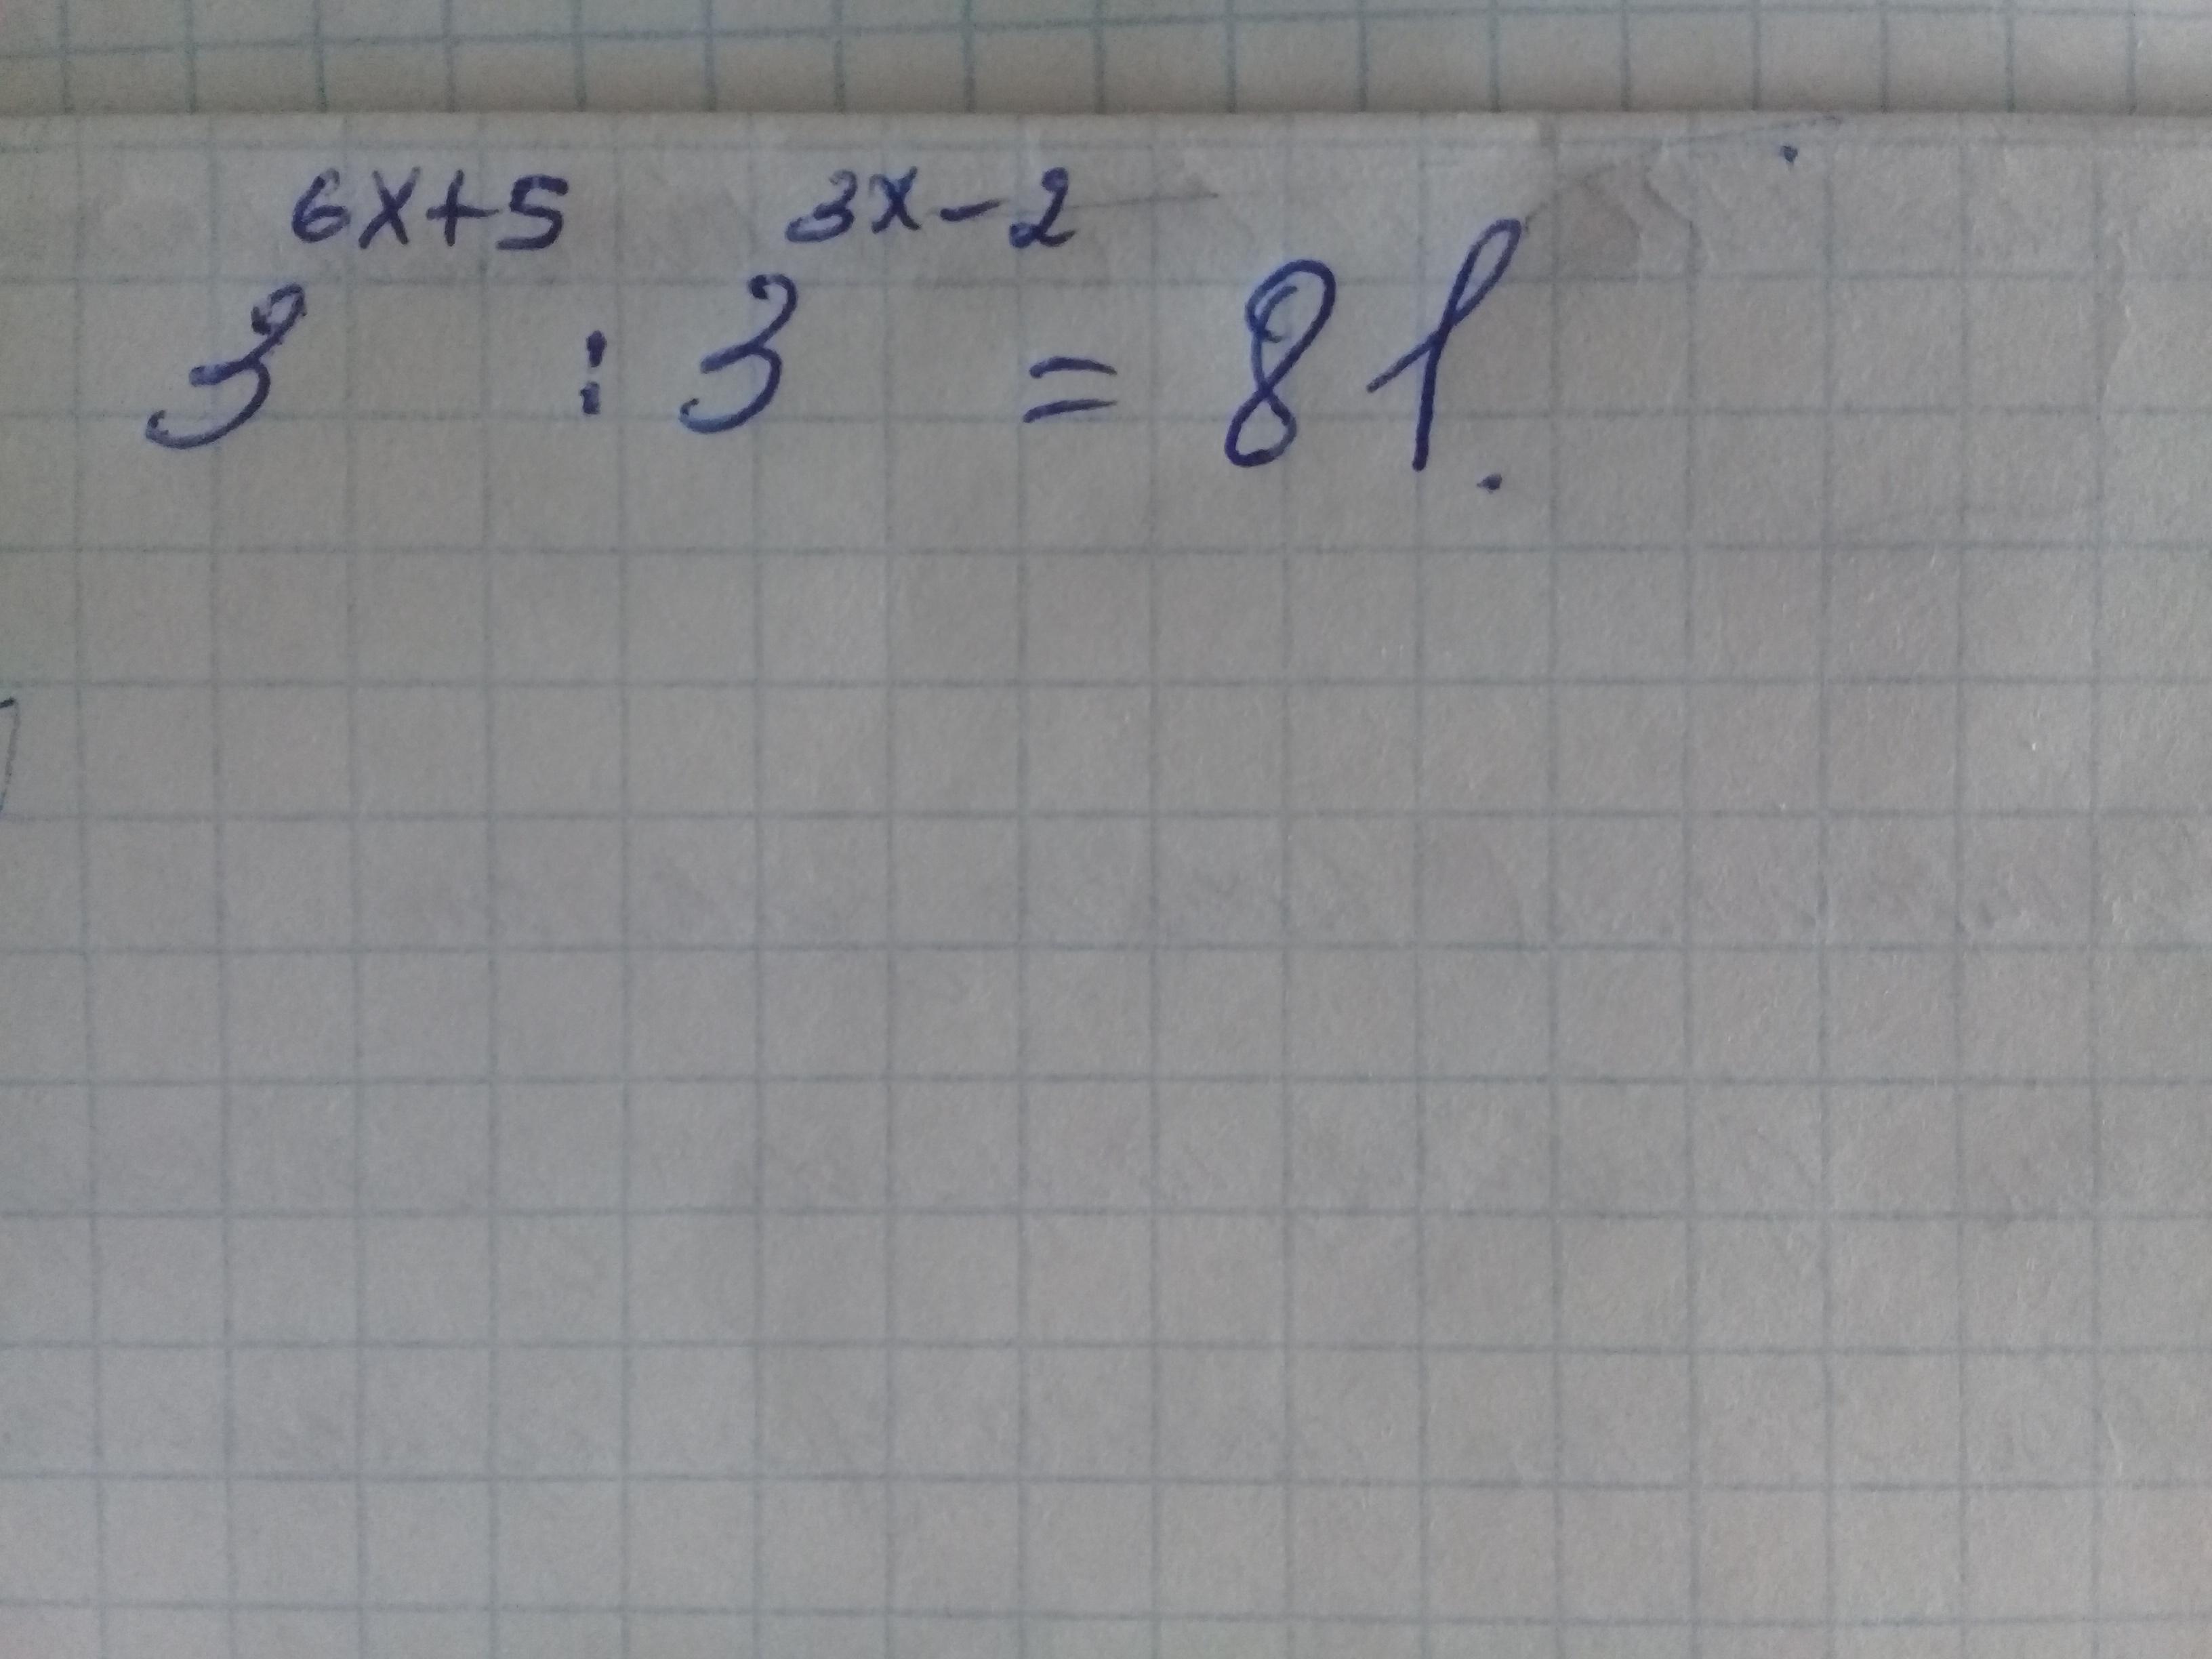 3^{6x+5} : 3^{3x-2} = 81.